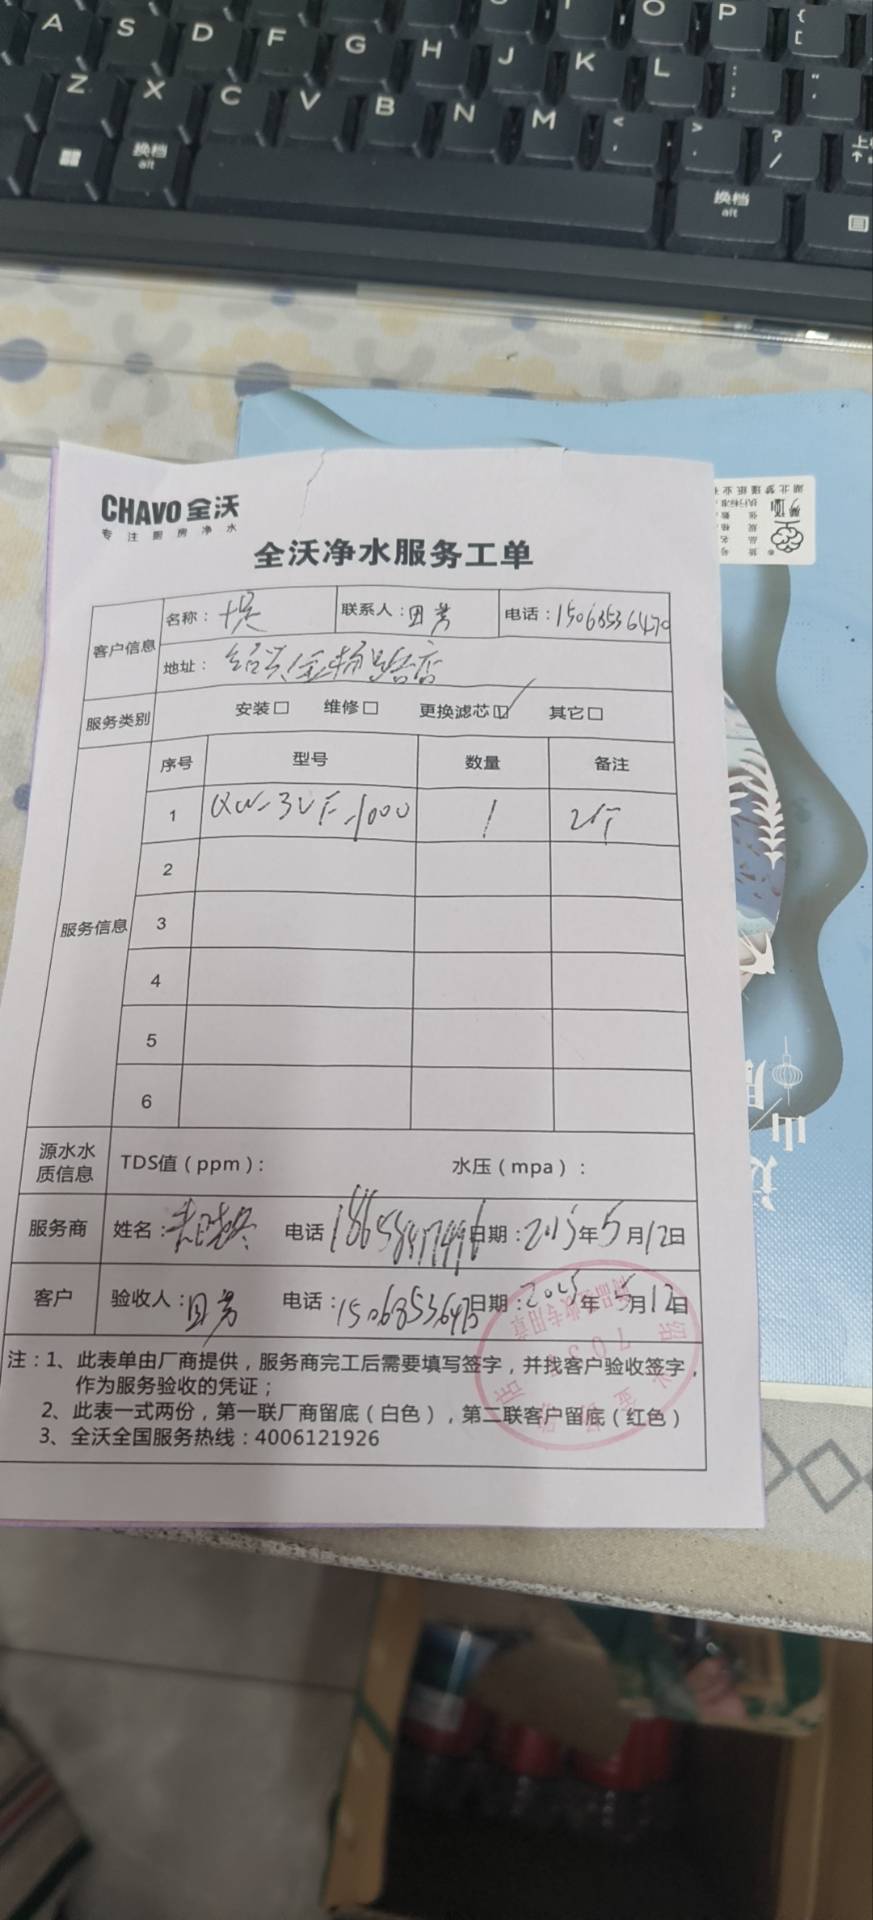 A S D F G H J K L : ;
O P { [
Z X C V B N M < , > . ? /
换档 alt
换档 alt
CHAVO 全沃
专注厨房净水
全沃净水服务工单
客户信息 名称： 联系人：田芳 电话：15063536470
地址：绍兴金杨路店
服务类别 安装□ 维修□ 更换滤芯☑ 其它□
服务信息 序号 型号 数量 备注
1 QW-3VF-1000 1 2个
2
3
4
5
6
源水水质信息 TDS值（ppm）： 水压（mpa）：
服务商 姓名： 电话 日期： 年5月12日
客户 验收人：田芳 电话：15063536470 日期： 年5月12日
注：1、此表单由厂商提供，服务商完工后需要填写签字，并找客户验收签字，
作为服务验收的凭证；
2、此表一式两份，第一联厂商留底（白色），第二联客户留底（红色）
3、全沃全国服务热线：4006121926